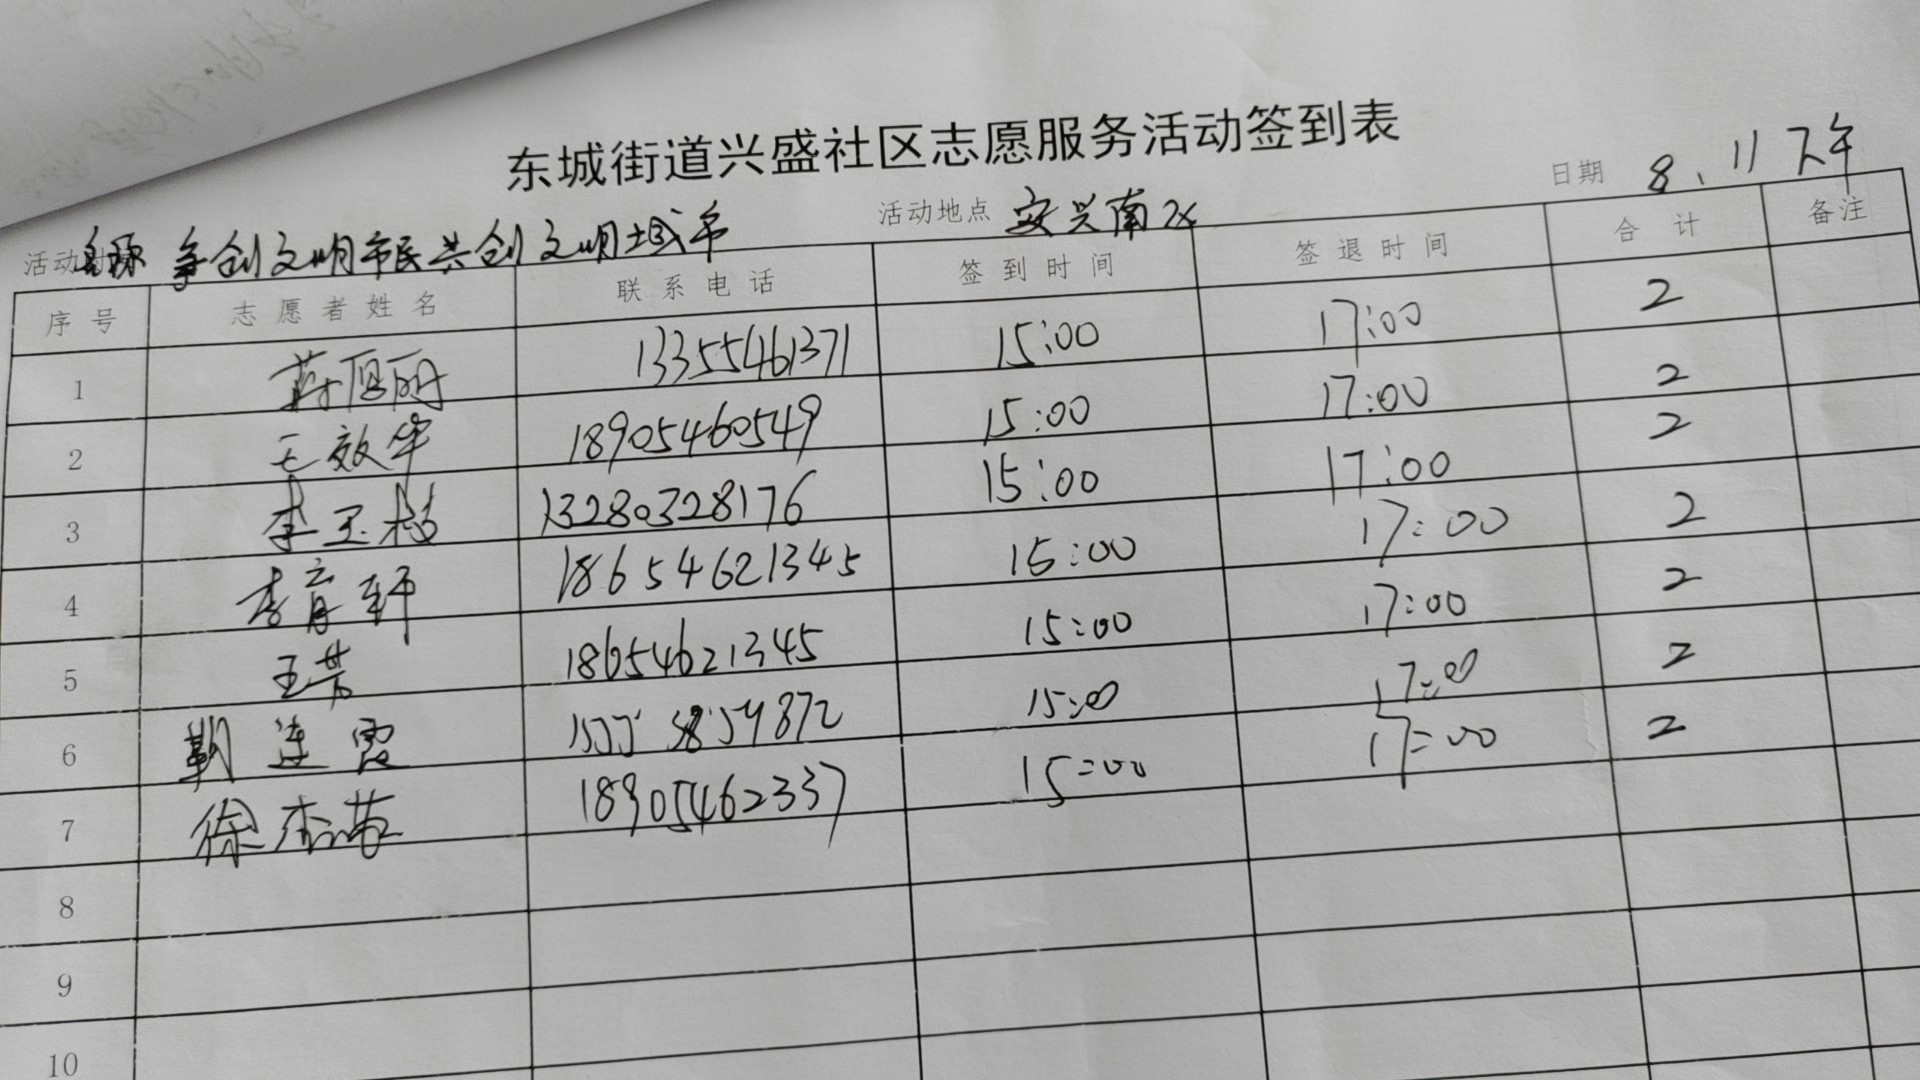 东城街道兴盛社区志愿服务活动签到表
活动名称 争创文明市民共创文明城市 活动地点 安兴南区 日期 8、11 下午
序号 志愿者姓名 联系电话 签到时间 签退时间 合计 备注
1 13355461371 15:00 17:00 2
2 王效华 18905460549 15:00 17:00 2
3 李玉梅 13280328176 15:00 17:00 2
4 李育轩 18654621345 15:00 17:00 2
5 王芳 18654621345 15:00 17:00 2
6 靳连霞 15:00 17:00 2
7 徐 18905462337 15:00 17:00 2
8
9
10